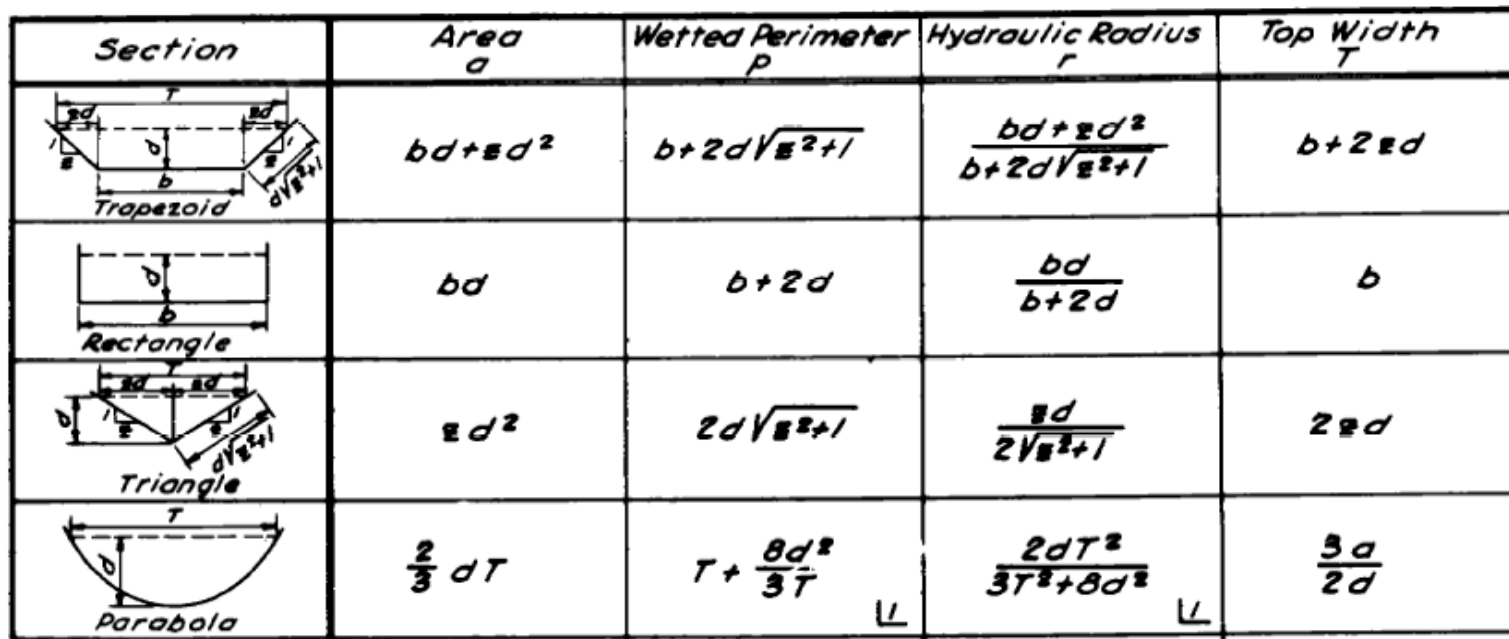 Section
Area
a
Wetted Perimeter
p
Hydraulic Radius
r
Top Width
T
T
zd
zd
1
z
d
1
z
b
d√z²+1
Trapezoid
bd+zd²
b+2d√z²+1
bd+zd²
b+2d√z²+1
b+2zd
d
b
Rectangle
bd
b+2d
bd
b+2d
b
T
zd
zd
d
1
z
1
z
d√z²+1
Triangle
zd²
2d√z²+1
zd
2√z²+1
2zd
T
d
Parabola
2/3 dT
T + 8d²/3T
1
2dT²
3T²+8d²
1
3a
2d